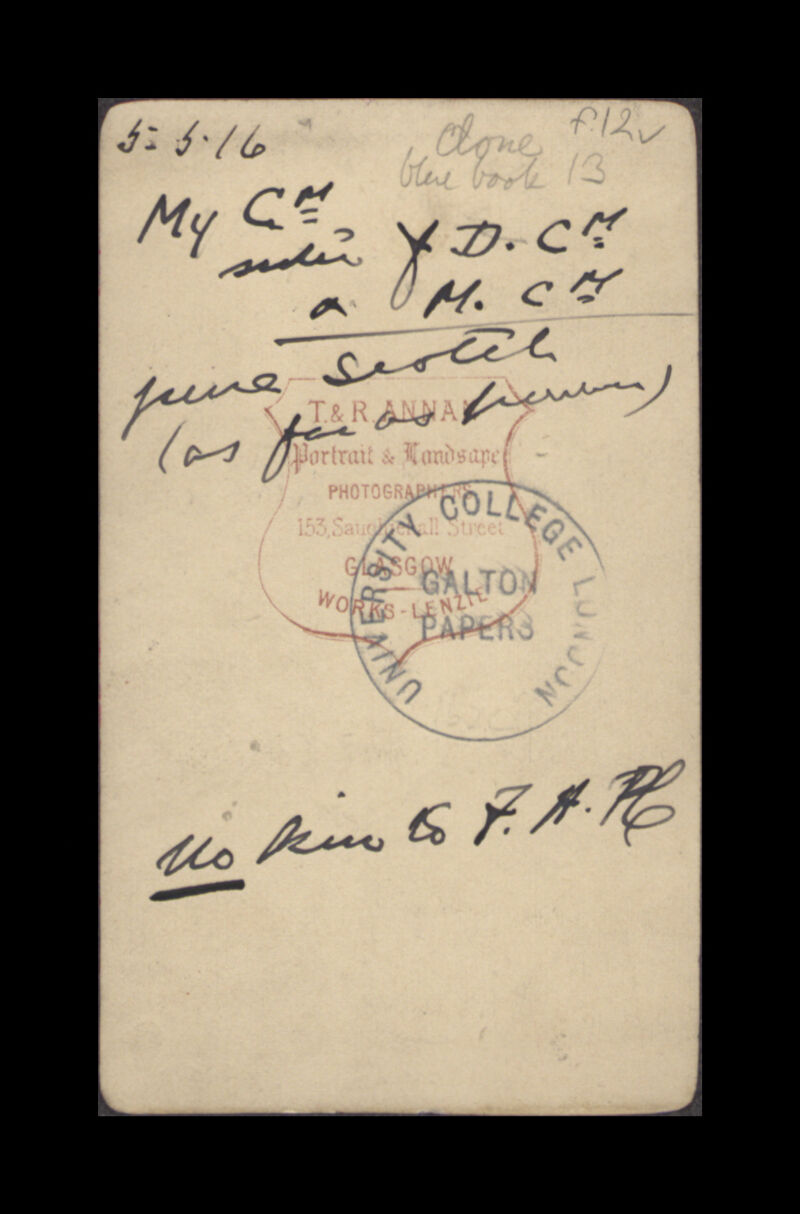 5-5-16
Done f.12v
blue book 13
My Cᴹ
sister of D. Cᴹ
a M. Cᴹ
pure Scotch
(as far as known)
T. & R. ANNAN
Portrait & Landsape
PHOTOGRAPHERS
153, Sauchiehall Street
GLASGOW
WORKS - LENZIE
UNIVERSITY COLLEGE LONDON
GALTON
PAPERS
No kin to F. H.